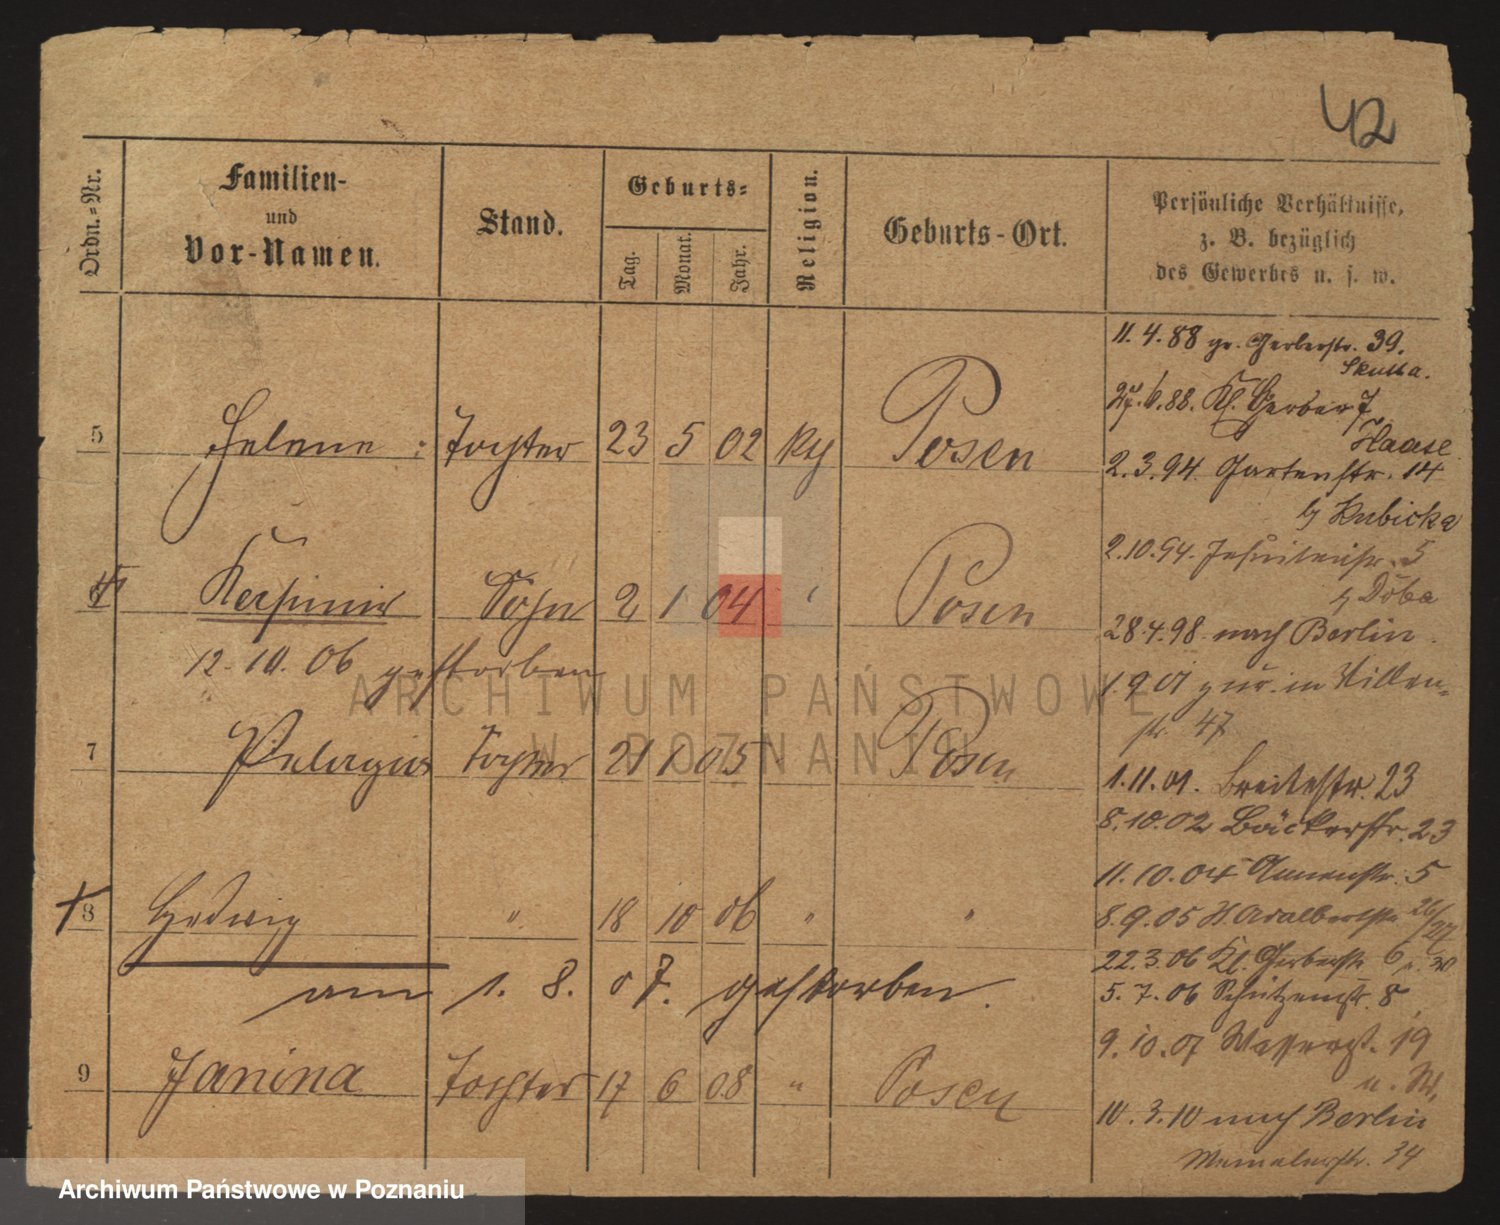 42
Ordn.-Nr.
Familien-
und
Vor-Namen.
Stand.
Geburts-
Tag.
Monat.
Jahr.
Religion.
Geburts-Ort.
Persönliche Verhältnisse,
z. B. bezüglich
des Gewerbes u. s. w.
11.4.88 gr. Gerberstr. 39.
Skutta.
6.88. Kl. Gerber 7
Haase
5 Helene : Tochter 23 5 02 Posen
2.3.94. Gartenstr. 14
b/ Kubicka
2.10.94. Jesuitenstr. 5
6 Sohn 2 1 04 Posen
b/ Doba
28.4.98. nach Berlin.
12.10.06 gestorben
1.9.01 zur. in
str. 47
7 Pelagia Tochter 21 1 05 Posen
1.11.01. Breitestr. 23
8.10.02 Bäckerstr. 23
11.10.04 Annenstr. 5
8 Hedwig " 18 10 06 " "
8.9.05 Adalbertstr. 26/27
22.3.06 Kl. Gerberstr. 6
am 1. 8. 07. gestorben.
5.7.06 Schützenstr. 8
9.10.07 Wasserstr. 19
9 Janina Tochter 17 6 08 " Posen
10.3.10 nach Berlin
34
ARCHIWUM PAŃSTWOWE
W POZNANIU
Archiwum Państwowe w Poznaniu